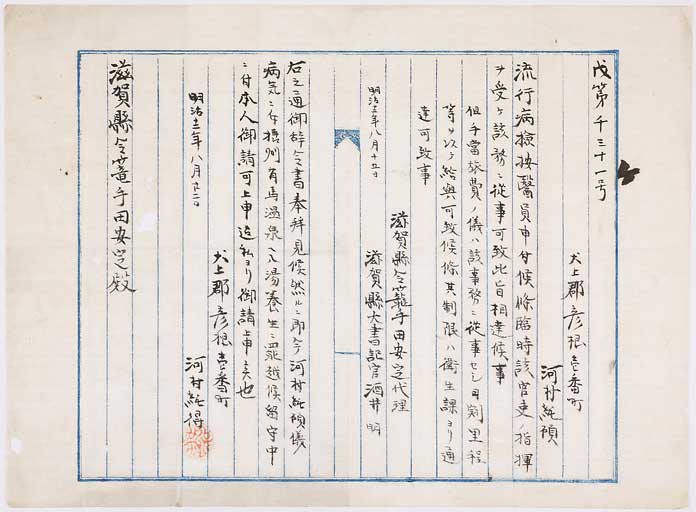 戊第千三十一号
犬上郡彦根壱番町
河村純碩
流行病検按醫員申付候條臨時該官吏ノ指揮
ヲ受ケ該務ニ従事可致此旨相達候事
但手當旅費ノ儀ハ該事務ニ従事セシ日割里程
等ヲ以テ給與可致候條其制限ハ衛生課ヨリ通
達可致事
明治十二年八月十五日
滋賀縣令籠手田安定代理
滋賀縣大書記官酒井明
右之通御辞令書奉拝見候然ルニ即今河村純碩儀
病気ニ付摂州有馬温泉ヘ入湯養生ニ罷越候留守中
ニ付本人御請可上申迄私ヨリ御請上申候也
犬上郡彦根壱番町
明治十二年八月廿二日
河村純得
滋賀縣令籠手田安定殿